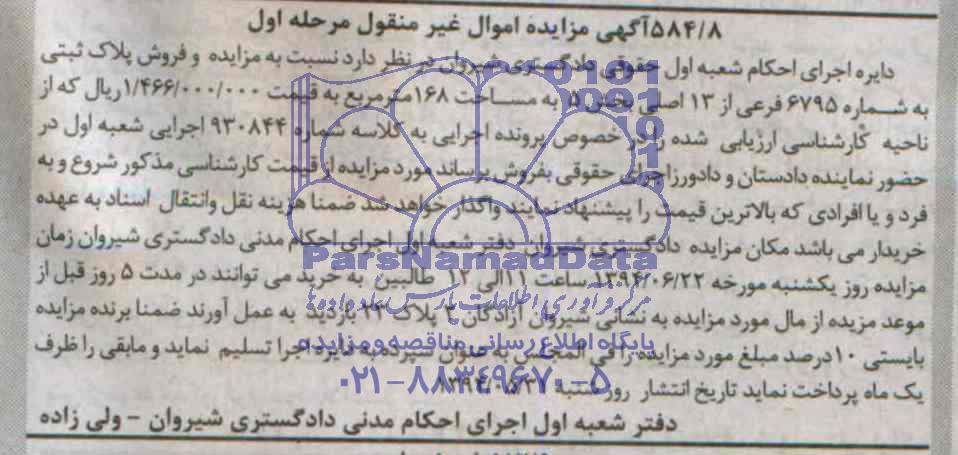 ۵۸۴/۸آگهی مزایده اموال غیر منقول مرحله اول
دایره اجرای احکام شعبه اول حقوقی دادگستری شیروان در نظر دارد نسبت به مزایده و فروش پلاک ثبتی
به شماره ۶۷۹۵ فرعی از ۱۳ اصلی بخش ۵ به مساحت ۱۶۸مترمربع به قیمت ۱/۴۶۶/۰۰۰/۰۰۰ریال که از
ناحیه کارشناسی ارزیابی شده را در خصوص پرونده اجرایی به کلاسه شماره ۹۳۰۸۴۴ اجرایی شعبه اول در
حضور نماینده دادستان و دادورزاجرای حقوقی بفروش برساند مورد مزایده از قیمت کارشناسی مذکور شروع و به
فرد و یا افرادی که بالاترین قیمت را پیشنهاد نمایند واگذار خواهد شد ضمنا هزینه نقل وانتقال اسناد به عهده
خریدار می باشد مکان مزایده دادگستری شیروان دفتر شعبه اول اجرای احکام مدنی دادگستری شیروان زمان
مزایده روز یکشنبه مورخه ۱۳۹۴/۰۶/۲۲ ساعت ۱۱الی ۱۲ طالبین به خرید می توانند در مدت ۵ روز قبل از
موعد مزیده از مال مورد مزایده به نشانی شیروان آزادگان ۳ پلاک ۲۴ بازدید به عمل آورند ضمنا برنده مزایده
بایستی ۱۰درصد مبلغ مورد مزایده را فی المجلس به عنوان سپرده به دایره اجرا تسلیم نماید و مابقی را ظرف
یک ماه پرداخت نماید تاریخ انتشار روز شنبه
دفتر شعبه اول اجرای احکام مدنی دادگستری شیروان - ولی زاده
ParsNamadData
مرکز فرآوری اطلاعات پارس نماد داده ها
پایگاه اطلاع رسانی مناقصه و مزایده
۰۲۱-۸۸۳۴۹۶۷۰-۵